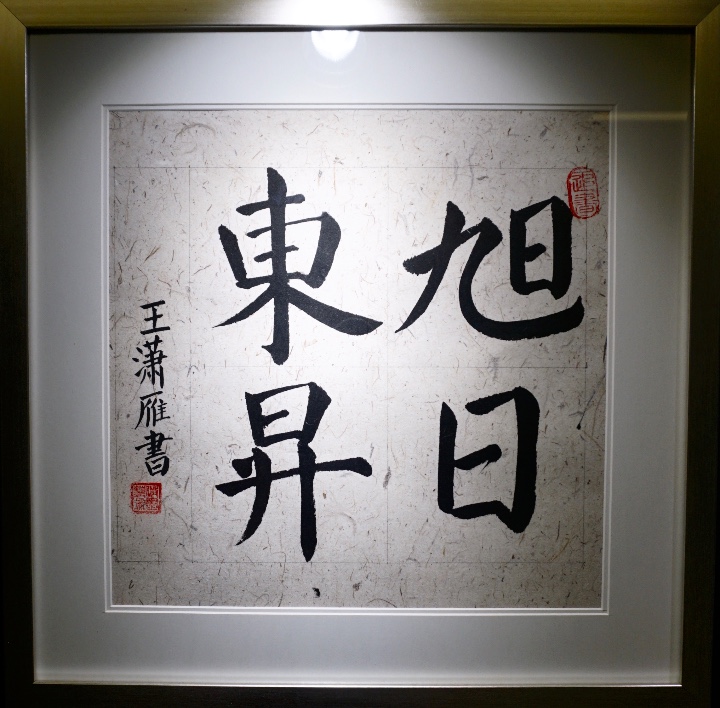 旭日
東昇
王瀟雁書